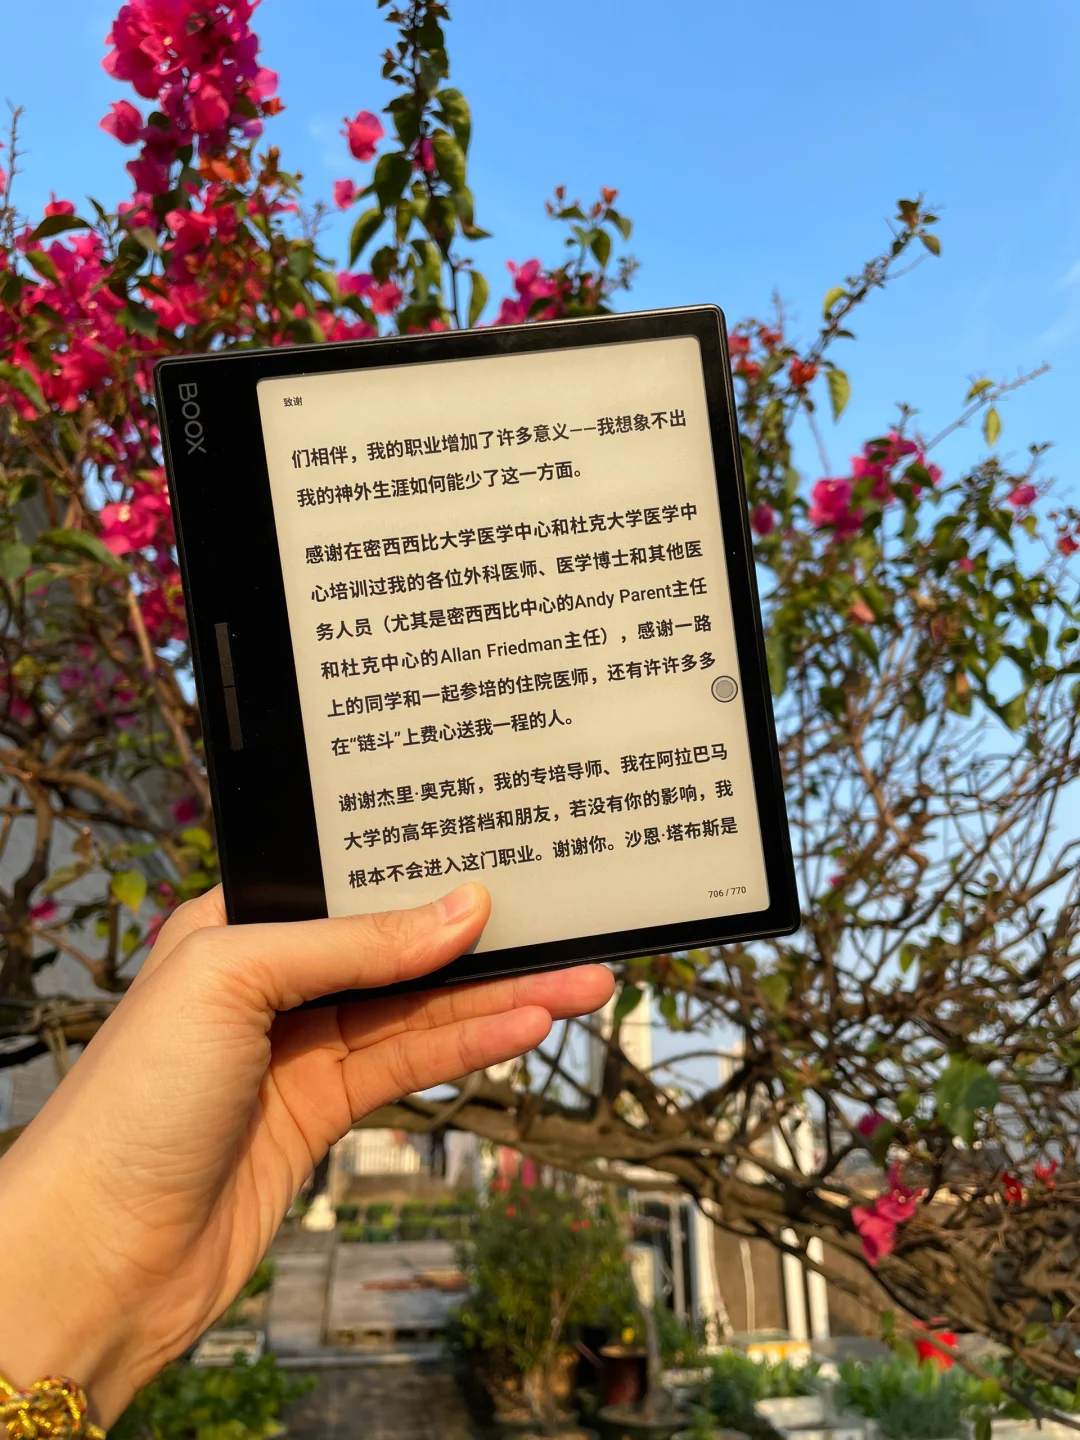 BOOX
致谢
们相伴，我的职业增加了许多意义——我想象不出
我的神外生涯如何能少了这一方面。
感谢在密西西比大学医学中心和杜克大学医学中
心培训过我的各位外科医师、医学博士和其他医
务人员（尤其是密西西比中心的Andy Parent主任
和杜克中心的Allan Friedman主任），感谢一路
上的同学和一起参培的住院医师，还有许许多多
在“链斗”上费心送我一程的人。
谢谢杰里·奥克斯，我的专培导师、我在阿拉巴马
大学的高年资搭档和朋友，若没有你的影响，我
根本不会进入这门职业。谢谢你。沙恩·塔布斯是
706 / 770